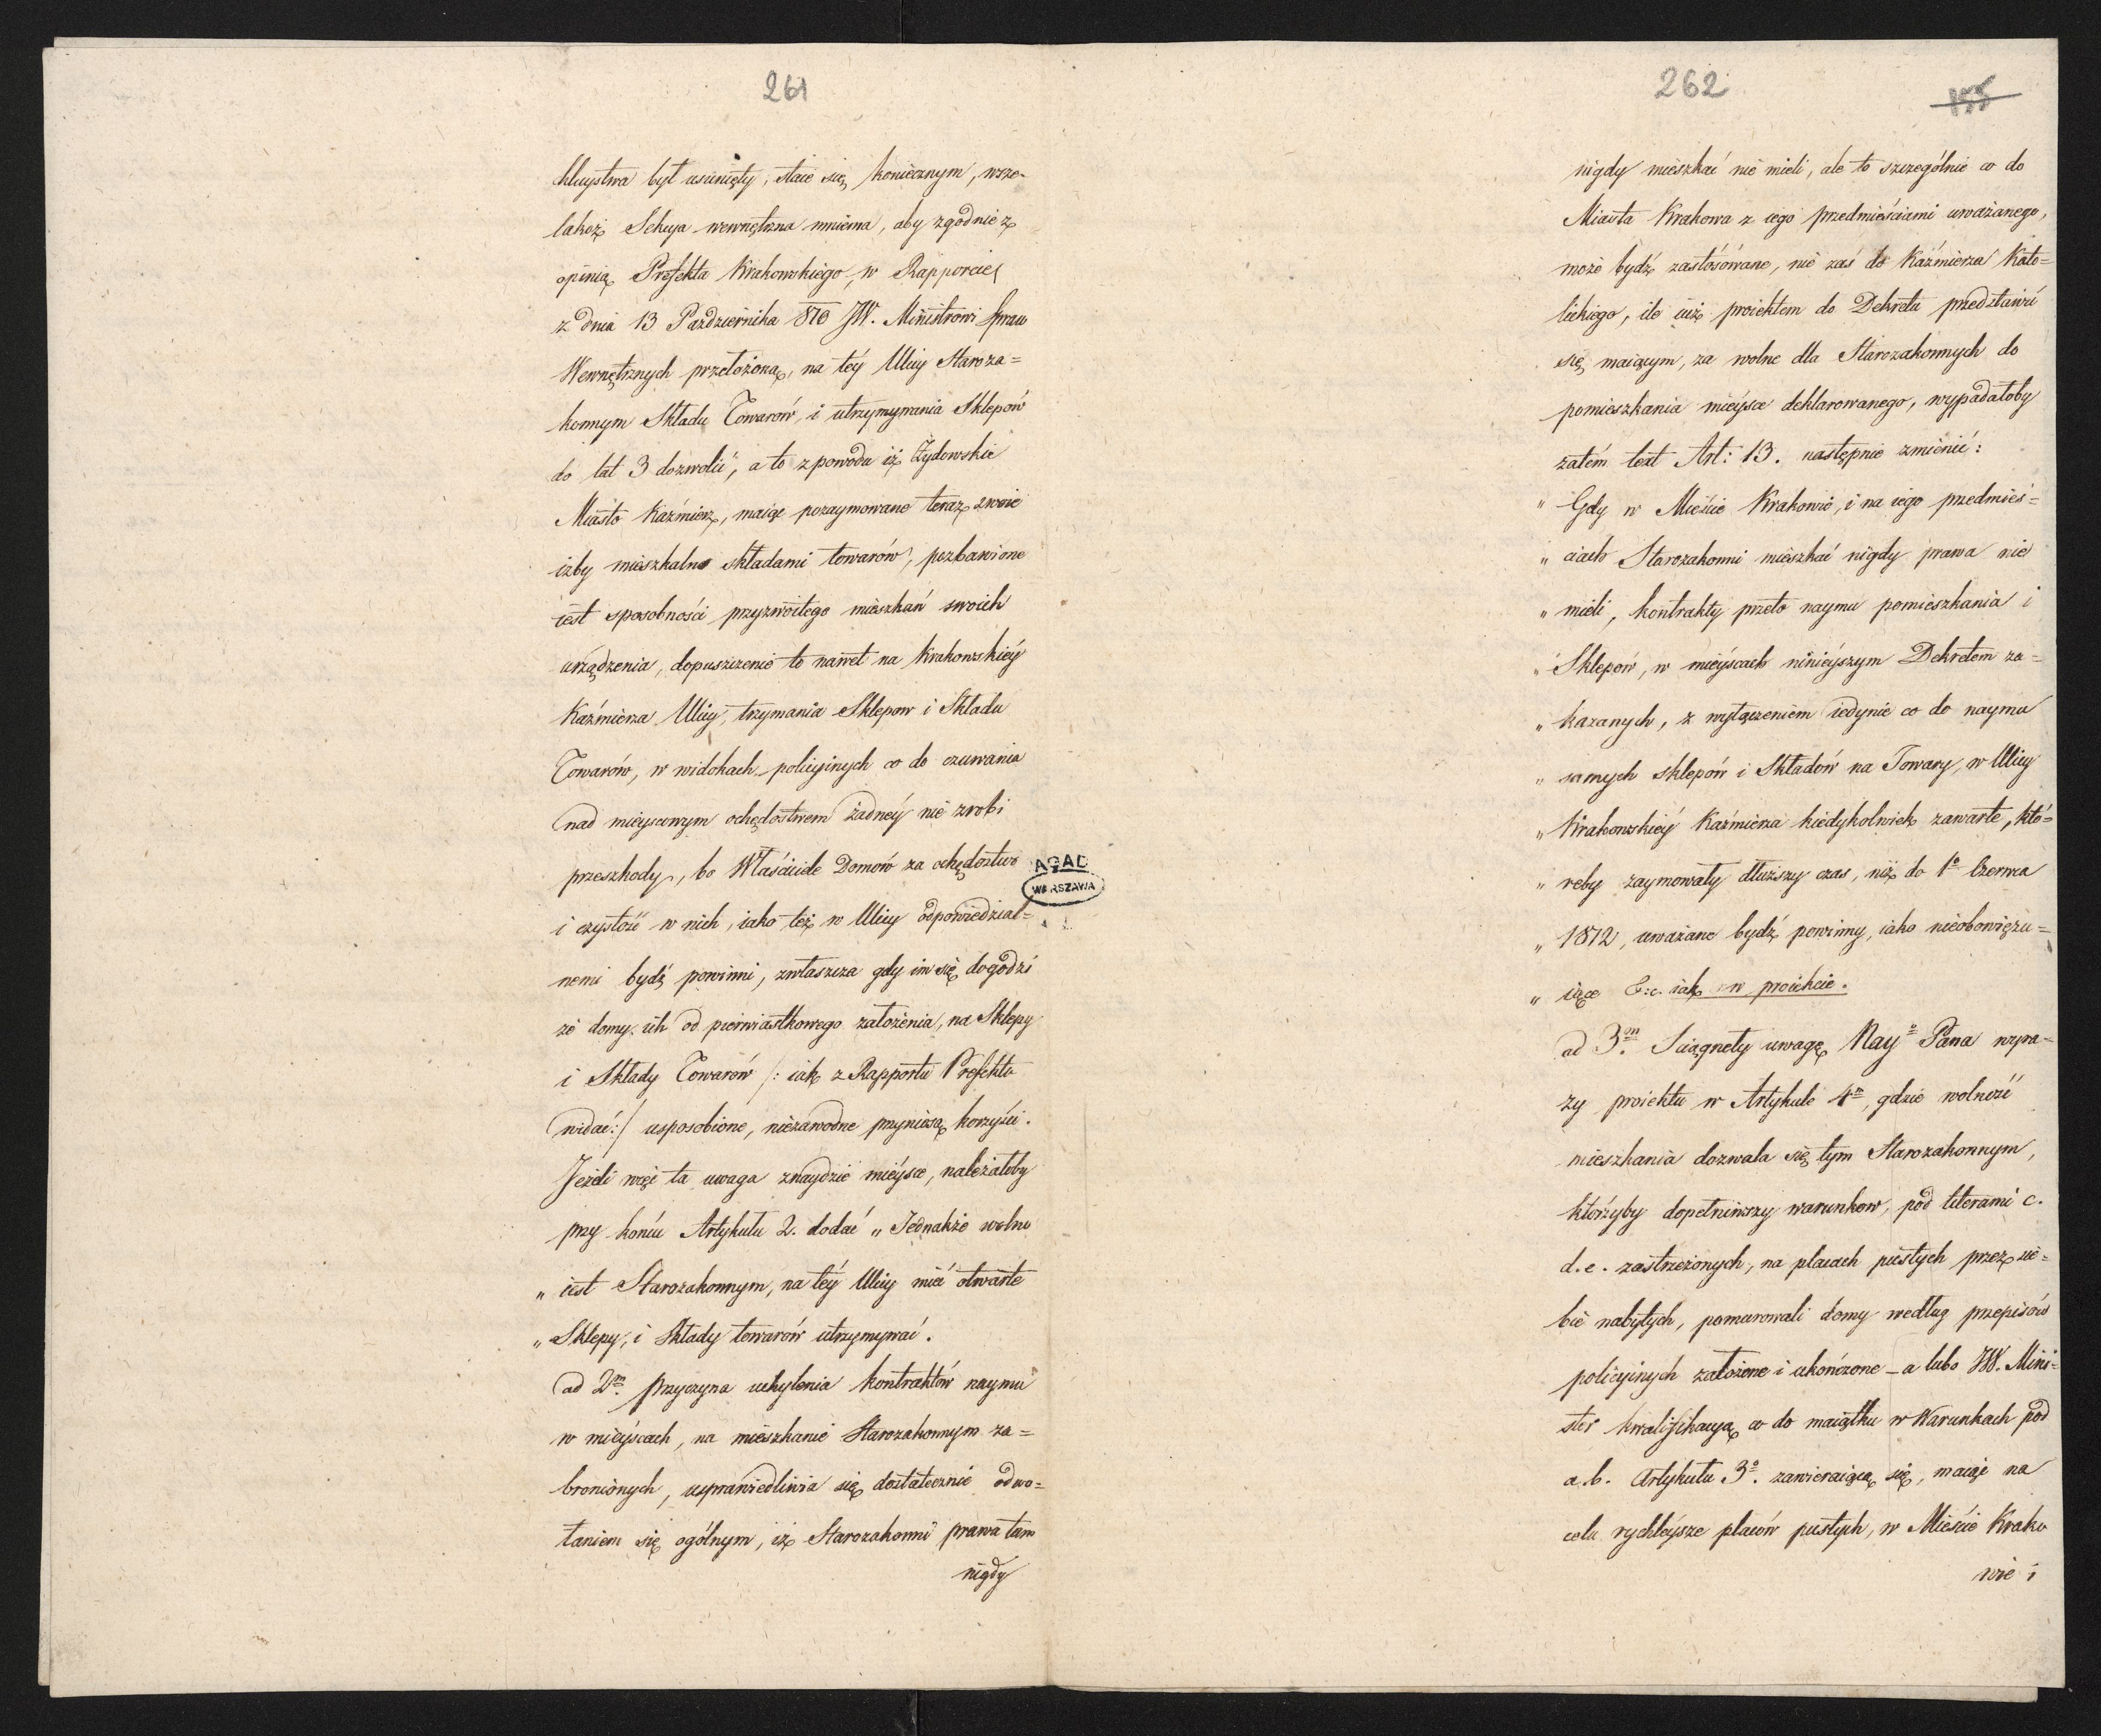 261
chluystwa był usunięty, staie się koniecznym, wsze-
lakoż Sekcya wewnętrzna mniema, aby zgodnie z
opinią Prefekta Krakowskiego, w Rapporcie
z dnia 13 Pazdziernika 810 JW. Ministrowi Spraw
Wewnętrznych przełożoną, na téy Ulicy Staroza=
konnym Składu Towarów, i utrzymywania Sklepów
do lat 3 dozwolić, a to z powodu iż Żydowskie
Miasto Kaźmierz, maiąc pozaymowane teraz swoie
izby mieszkalne składami towarów, pozbawione
iest sposobności przyzwoitego mieszkań swoich
urządzenia, dopuszczenie to nawet na Krakowskiéy
Kaźmierza Ulicy, trzymania Sklepow i Składu
Towarów, w widokach policyinych co do czuwania
nad mieyscowym ochędostwem żadnéy nie zrobi
przeszkody, bo Właściciele Domów za ochędostwo
i czystość w nich, iako też w Ulicy odpowiedzial=
nemi bydź powinni, zwłaszcza gdy im się dogodzi
że domy ich od pierwiastkowego założenia, na Sklepy
i Składy Towarów /: iak z Rapportu Prefekta
widać :/ usposobione, niezawodne przyniosą korzyści.
Jeżeli więc ta uwaga znaydzie miéysce, należałoby
przy końcu Artykułu 2. dodać „ Jednakże wolno
„ iest Starozakonnym, na téy Ulicy mieć otwarte
„ Sklepy, i Składy towarów utrzymywać.
ad 2m. Przyczyna uchylenia kontraktów naymu
w mieyscach, na mieszkanie Starozakonnym za=
bronionych, usprawiedliwia się dostatecznie odwo=
łaniem się ogólnym, iż Starozakonni prawa tam
nigdy
AGAD
WARSZAWA
262
155
nigdy mieszkać nie mieli, ale to szczególnie co do
Miasta Krakowa z iego przedmieściami uważanego,
może bydź zastósówane, nie zaś do Kaźmierza Kato=
lickiego, ile iuż proiektem do Dekretu przedstawić
się maiącym, za wolne dla Starozakonnych do
pomieszkania mieysce deklarowanego, wypadałoby
zatém text Art: 13. następnie zmienić:
„ Gdy w Mieście Krakowie, i na iego przedmieś=
„ ciach Starozakonni mieszkać nigdy prawa nie
„ mieli, kontrakty przeto naymu pomieszkania i
„ Sklepów, w mieyscach ninieyszym Dekretem za=
„ kazanych, z wyłączeniem iedynie co do naymu
„ samych sklepów i Składów na Towary, w Ulicy
„ Krakowskiéy Kaźmierza kiedykolwiek zawarte, któ=
„ reby zaymowały dłuższy czas, niż do 1o Czerwca
„ 1812, uważane bydź powinny, iako nieobowięzu=
„ iące &c. iak w proiekcie.
ad 3m. Sciągnęły uwagę Nayo Pana wyra=
zy proiektu w Artykule 4m, gdzie wolność
mieszkania dozwala się tym Starozakonnym,
którzyby dopełniwszy warunkow, pod literami c.
d. e. zastrzeżonych, na placach pustych przez sie=
bie nabytych, pomurowali domy według przepisów
policyinych założone i ukończone – a lubo JW. Mini=
ster kwalifikacyą co do maiątku w Warunkach pod
a. b. Artykułu 3o. zawieraiącą się, maiąc na
celu rychleysze placów pustych, w Mieście Krako
wie i